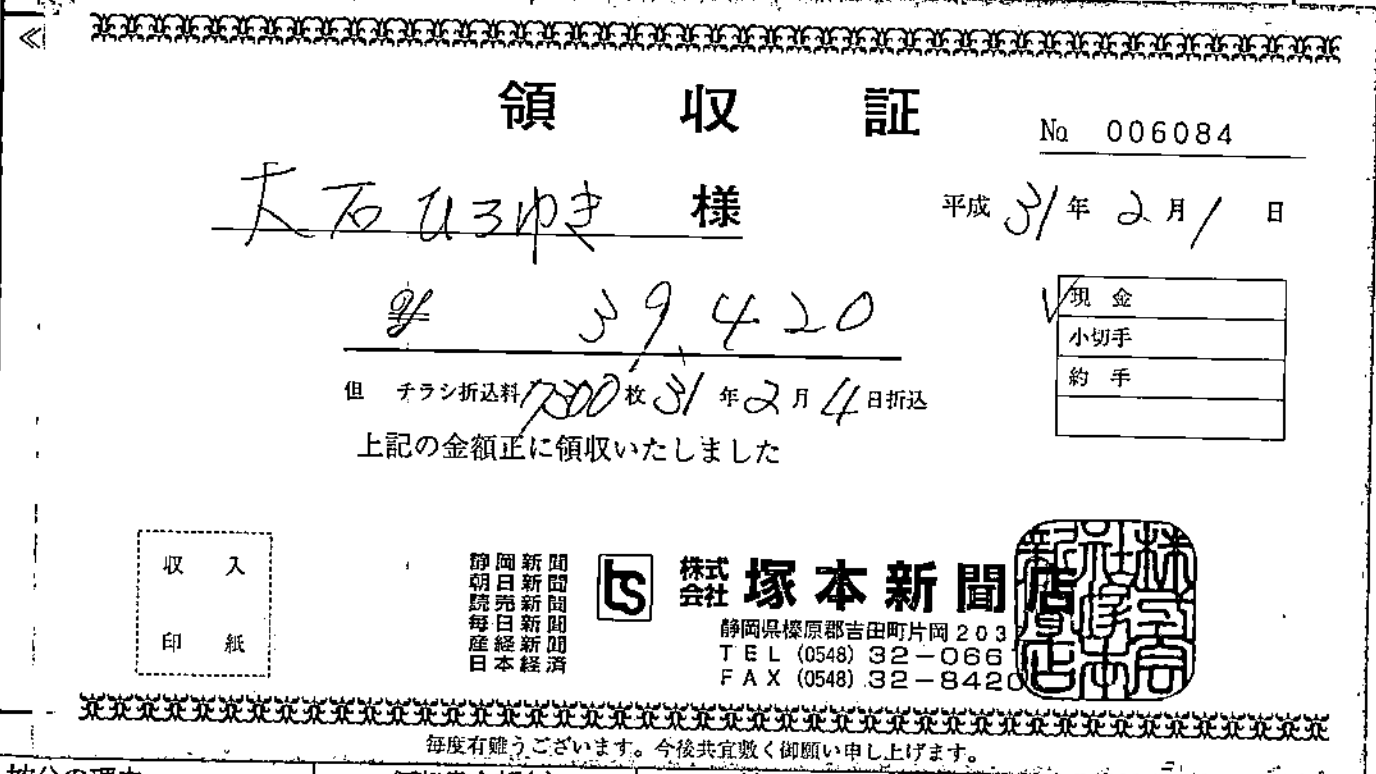 領収証
No 006084
大石ひろゆき 様
平成31年2月1日
¥ 39,420
現金
小切手
約手
但 チラシ折込料 7300枚 31年2月4日折込
上記の金額正に領収いたしました
収入
印紙
静岡新聞
朝日新聞
読売新聞
毎日新聞
産経新聞
日本経済
ts
株式会社 塚本新聞店
静岡県榛原郡吉田町片岡203
TEL (0548) 32-066
FAX (0548) 32-8420
毎度有難うございます。今後共宜敷く御願い申し上げます。